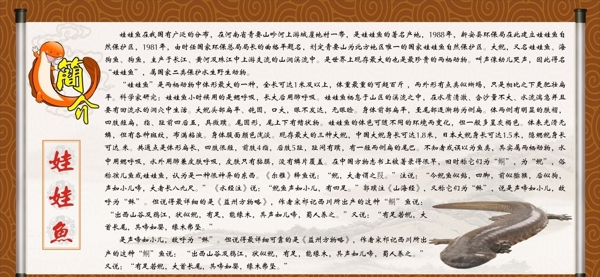 簡介
娃娃魚
娃娃鱼在我国有广泛的分布，在河南省青要山畛河上游城崖地村一带，是娃娃鱼的著名产地，1988年，新安县环保局在此建立娃娃鱼自
然保护区，1981年，由时任国家环保总局局长的曲格平题名，划定青要山为北方地区唯一的国家娃娃鱼自然保护区。大鲵，又名娃娃鱼、海
狗鱼、狗鱼，主产于长江、黄河及珠江中上游支流的山涧溪流中，是世界上现存最大的也是最珍贵的两栖动物。叫声像幼儿哭声，因此得名
娃娃鱼"，属国家二类保护水生野生动物。
"娃娃鱼"是两栖动物中体形最大的一种，全长可达1米及以上，体重最重的可超百斤，而外形有点类似蜥蜴，只是相比之下更肥壮扁
平。科学研究：娃娃鱼小时候用的是鳃呼吸，长大后用肺呼吸。娃娃鱼栖息于山区的溪流之中，在水质清澈、含沙量不大，水流湍急并且
要有回流水的洞穴中生活。大鲵头部扁平、钝圆，口大，眼不发达，无眼睑。身体前部扁平，至尾部逐渐转为侧扁。体两侧有明显的肤褶，
四肢短扁，指、趾前四后五，具微蹼。尾圆形，尾上下有鳍状物。娃娃鱼的体色可随不同的环境而变化，但一般多呈灰褐色。体表光滑无
鳞，但有各种斑纹，布满粘液。身体腹面颜色浅淡。现存最大的三种大鲵，中国大鲵身长可达1.8米，日本大鲵身长可达1.5米，隐鳃鲵身长可
达米。共通点是体形扁长，四肢很短，前肢4指，后肢5趾，趾间有蹼，有一枝两侧扁的尾巴。不知者或误以为鱼类，其实属两栖动物，水
中用鳃呼吸，水外用肺兼皮肤呼吸，皮肤只有黏膜，没有鳞片覆盖。在中国方物志书上被裁录得很早，旧时称它们为"鲵"，为"鲵"。俗
称孩儿鱼或娃娃鱼，认为是一种很神异的东西。《尔雅》释鱼说："鲵，大者谓之鰕。"注说："今鲵鱼似鲇，四脚，前似猕猴，后似狗，
声如小儿啼，大者长八九尺。"《水经注》说："鲵鱼声如小儿，有四足。"郭璞注《山海经》，又称它们为"鲵"，说是声如小儿啼，故
呼为"鲵"。但说得最详细的是《益州方物略》，作者宋祁记西川所出产的这种"鲵"鱼说：
"出西山谷及鸦江，状似鲵，有足，能缘木，其声如儿啼，蜀人养之。"又说："有足若鲵，大
首长尾，其啼如婴，缘木弗坠。"
是声啼如小儿，故呼为"鲵"。但说得最详细可靠的是《益州方物略》，作者宋祁记西川所出
产的这种"鲵"鱼说："出西山谷及鸦江，状似鲵，有足，能缘木，其声如儿啼，蜀人养之。"
又说："有足若鲵，大首长尾，其啼如婴，缘木弗坠。"